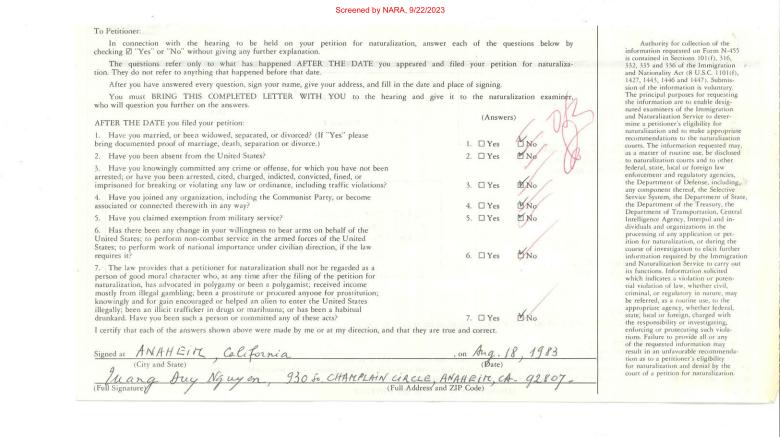 Screened by NARA, 9/22/2023
To Petitioner:
In connection with the hearing to be held on your petition for naturalization, answer each of the questions below by
checking ☑ "Yes" or "No" without giving any further explanation.
The questions refer only to what has happened AFTER THE DATE you appeared and filed your petition for naturaliza-
tion. They do not refer to anything that happened before that date.
After you have answered every question, sign your name, give your address, and fill in the date and place of signing.
You must BRING THIS COMPLETED LETTER WITH YOU to the hearing and give it to the naturalization examiner,
who will question you further on the answers.
(Answers)
AFTER THE DATE you filed your petition:
1. Have you married, or been widowed, separated, or divorced? (If "Yes" please
bring documented proof of marriage, death, separation or divorce.) 1. ☐ Yes ☑ No
2. Have you been absent from the United States? 2. ☐ Yes ☑ No
3. Have you knowingly committed any crime or offense, for which you have not been
arrested; or have you been arrested, cited, charged, indicted, convicted, fined, or
imprisoned for breaking or violating any law or ordinance, including traffic violations? 3. ☐ Yes ☑ No
4. Have you joined any organization, including the Communist Party, or become
associated or connected therewith in any way? 4. ☐ Yes ☑ No
5. Have you claimed exemption from military service? 5. ☐ Yes ☑ No
6. Has there been any change in your willingness to bear arms on behalf of the
United States; to perform non-combat service in the armed forces of the United
States; to perform work of national importance under civilian direction, if the law
requires it? 6. ☐ Yes ☑ No
7. The law provides that a petitioner for naturalization shall not be regarded as a
person of good moral character who, at any time after the filing of the petition for
naturalization, has advocated in polygamy or been a polygamist; received income
mostly from illegal gambling; been a prostitute or procured anyone for prostitution;
knowingly and for gain encouraged or helped an alien to enter the United States
illegally; been an illicit trafficker in drugs or marihuana; or has been a habitual
drunkard. Have you been such a person or committed any of these acts? 7. ☐ Yes ☑ No
I certify that each of the answers shown above were made by me or at my direction, and that they are true and correct.
Signed at ANAHEIM, California, on Aug. 18, 1983
(City and State) (Date)
Quang Duy Nguyen, 930 So. CHAMPLAIN CIRCLE, ANAHEIM, CA. 92807.
(Full Signature) (Full Address and ZIP Code)
Authority for collection of the
information requested on Form N-455
is contained in Sections 101(f), 316,
332, 335 and 336 of the Immigration
and Nationality Act (8 U.S.C. 1101(f),
1427, 1443, 1446 and 1447). Submis-
sion of the information is voluntary.
The principal purposes for requesting
the information are to enable desig-
nated examiners of the Immigration
and Naturalization Service to deter-
mine a petitioner's eligibility for
naturalization and to make appropriate
recommendations to the naturalization
courts. The information requested may,
as a matter of routine use, be disclosed
to naturalization courts and to other
federal, state, local or foreign law
enforcement and regulatory agencies,
the Department of Defense, including
any component thereof, the Selective
Service System, the Department of State,
the Department of the Treasury, the
Department of Transportation, Central
Intelligence Agency, Interpol and in-
dividuals and organizations in the
processing of any application or pe-
tition for naturalization, or during the
course of investigation to elicit further
information required by the Immigration
and Naturalization Service to carry out
its functions. Information solicited
which indicates a violation or poten-
tial violation of law, whether civil,
criminal, or regulatory in nature, may
be referred, as a routine use, to the
appropriate agency, whether federal,
state, local or foreign, charged with
the responsibility or investigating,
enforcing or protecting such viola-
tions. Failure to provide all or any
of the requested information may
result in an unfavorable recommenda-
tion as to a petitioner's eligibility
for naturalization and denial by the
court of a petition for naturalization.